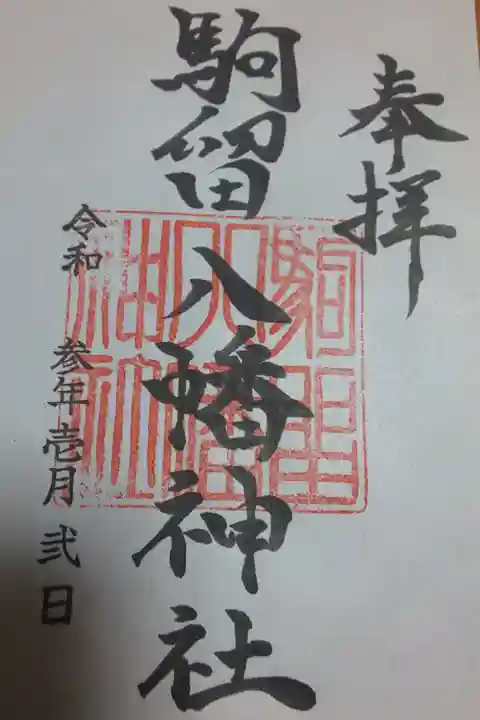 奉拝
駒留八幡神社
令和 参年壱月弐日
駒留
八幡
神社